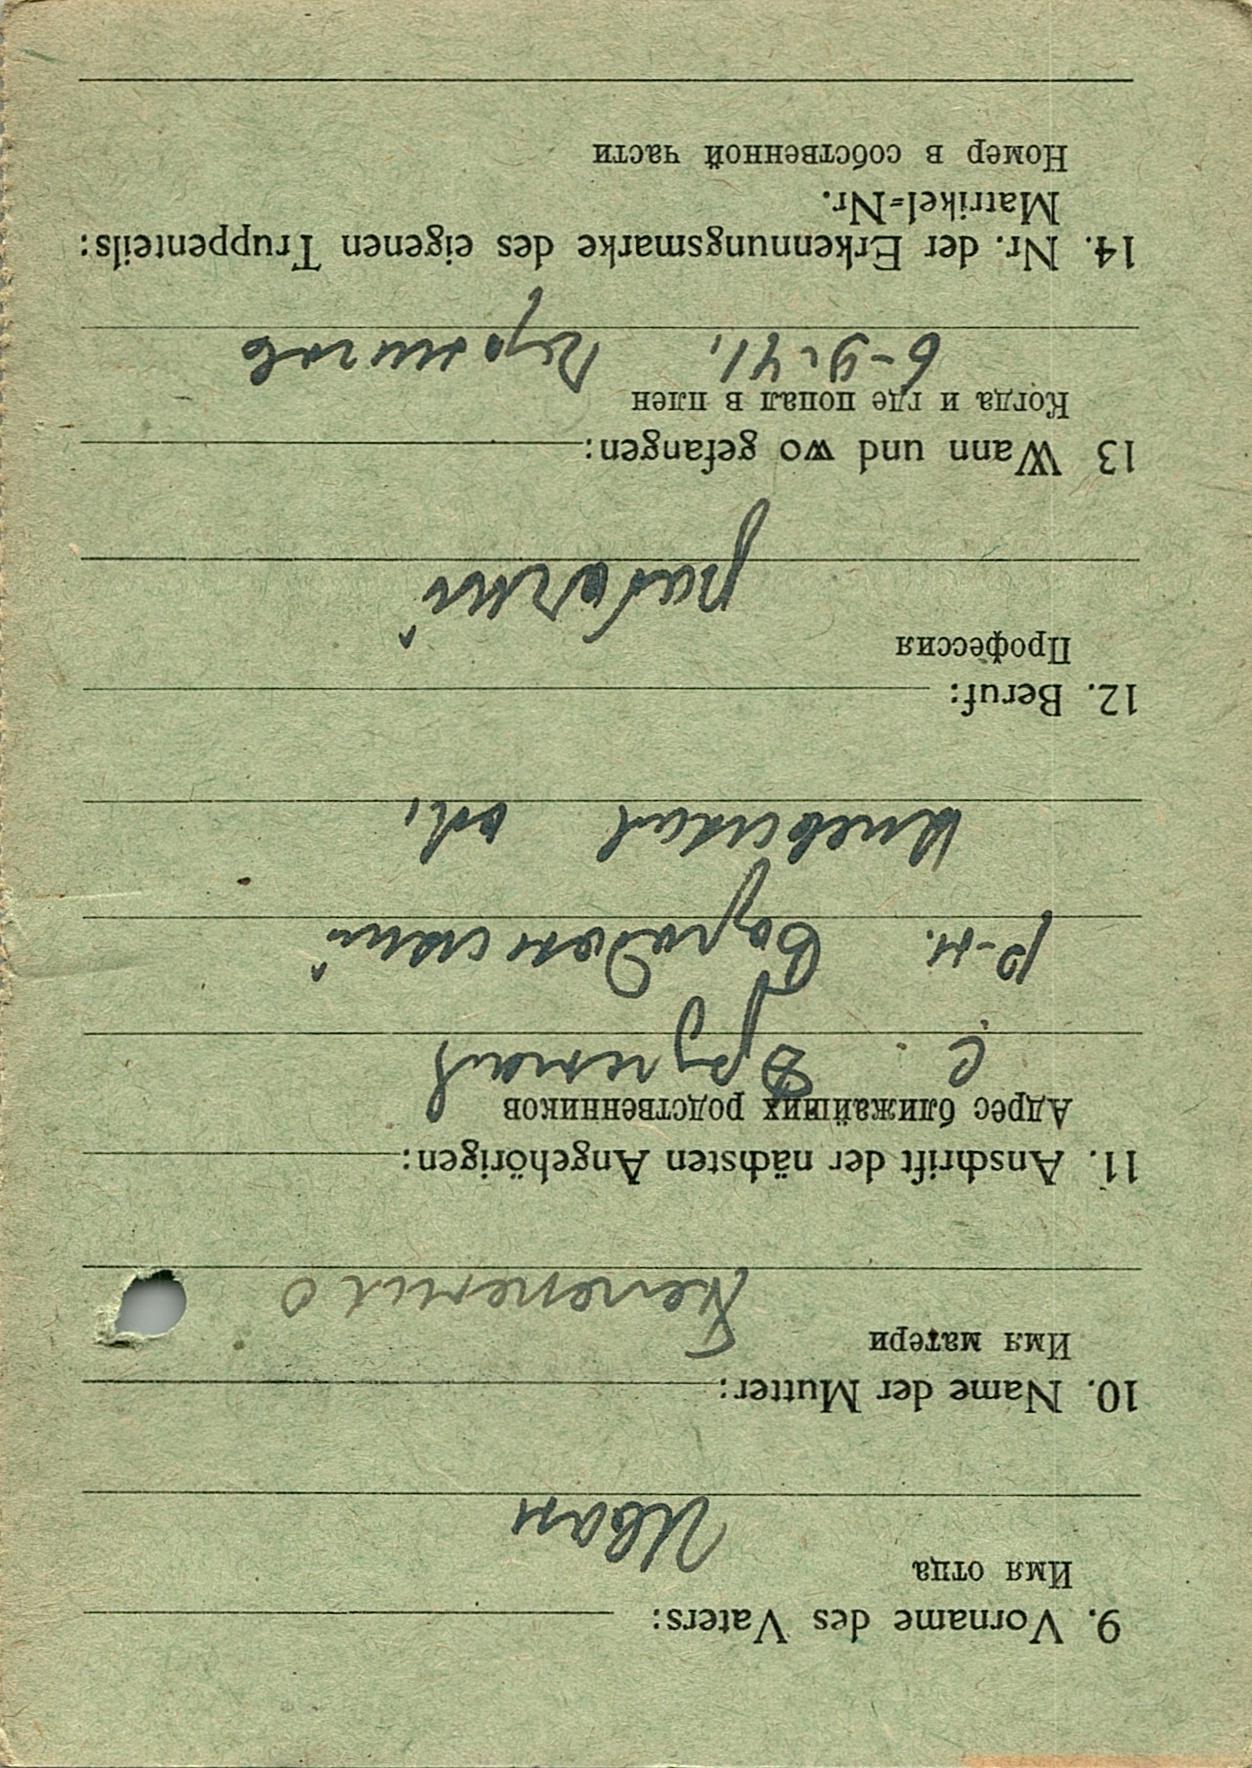 9. Vorname des Vaters:
Имя отца
Иван
10. Name der Mutter:
Имя матери
11. Anschrift der nächsten Angehörigen:
Адрес ближайших родственников
с.
р-н. Бородянский
Киевская об,
12. Beruf:
Профессия
рабочий
13 Wann und wo gefangen:
Когда и где попал в плен
6-9-41,
14. Nr. der Erkennungsmarke des eigenen Truppenteils:
Matrikel=Nr.
Номер в собственной части